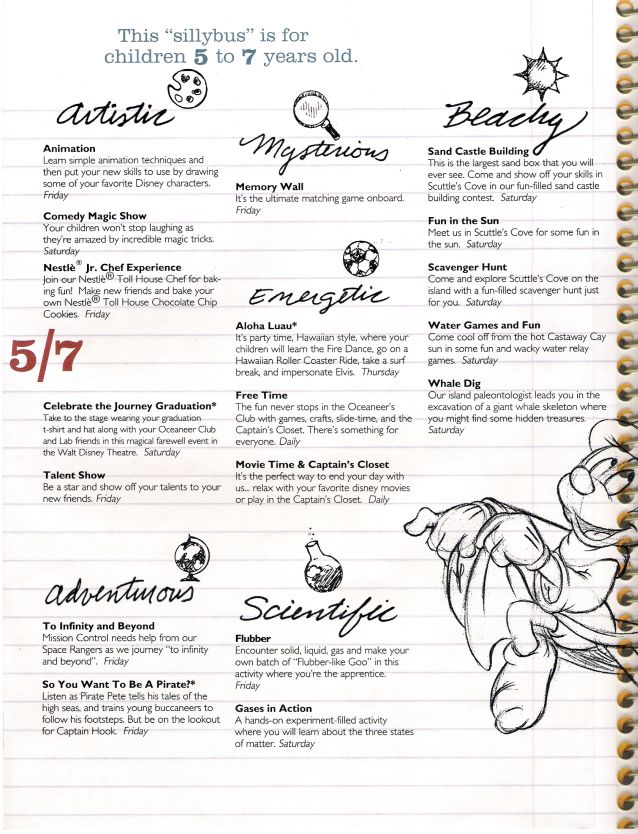 This "sillybus" is for
children 5 to 7 years old.
Artistic
Animation
Learn simple animation techniques and
then put your new skills to use by drawing
some of your favorite Disney characters.
Friday
Comedy Magic Show
Your children won't stop laughing as
they're amazed by incredible magic tricks.
Saturday
Nestlè® Jr. Chef Experience
Join our Nestlè® Toll House Chef for bak-
ing fun! Make new friends and bake your
own Nestlè® Toll House Chocolate Chip
Cookies. Friday
5/7
Celebrate the Journey Graduation*
Take to the stage wearing your graduation
t-shirt and hat along with your Oceaneer Club
and Lab friends in this magical farewell event in
the Walt Disney Theatre. Saturday
Talent Show
Be a star and show off your talents to your
new friends. Friday
Adventurous
To Infinity and Beyond
Mission Control needs help from our
Space Rangers as we journey "to infinity
and beyond". Friday
So You Want To Be A Pirate?*
Listen as Pirate Pete tells his tales of the
high seas, and trains young buccaneers to
follow his footsteps. But be on the lookout
for Captain Hook. Friday
Mysterious
Memory Wall
It's the ultimate matching game onboard.
Friday
Energetic
Aloha Luau*
It's party time, Hawaiian style, where your
children will learn the Fire Dance, go on a
Hawaiian Roller Coaster Ride, take a surf
break, and impersonate Elvis. Thursday
Free Time
The fun never stops in the Oceaneer's
Club with games, crafts, slide-time, and the
Captain's Closet. There's something for
everyone. Daily
Movie Time & Captain's Closet
It's the perfect way to end your day with
us... relax with your favorite disney movies
or play in the Captain's Closet. Daily
Scientific
Flubber
Encounter solid, liquid, gas and make your
own batch of "Flubber-like Goo" in this
activity where you're the apprentice.
Friday
Gases in Action
A hands-on experiment-filled activity
where you will learn about the three states
of matter. Saturday
Beachy
Sand Castle Building
This is the largest sand box that you will
ever see. Come and show off your skills in
Scuttle's Cove in our fun-filled sand castle
building contest. Saturday
Fun in the Sun
Meet us in Scuttle's Cove for some fun in
the sun. Saturday
Scavenger Hunt
Come and explore Scuttle's Cove on the
island with a fun-filled scavenger hunt just
for you. Saturday
Water Games and Fun
Come cool off from the hot Castaway Cay
sun in some fun and wacky water relay
games. Saturday
Whale Dig
Our island paleontologist leads you in the
excavation of a giant whale skeleton where
you might find some hidden treasures.
Saturday